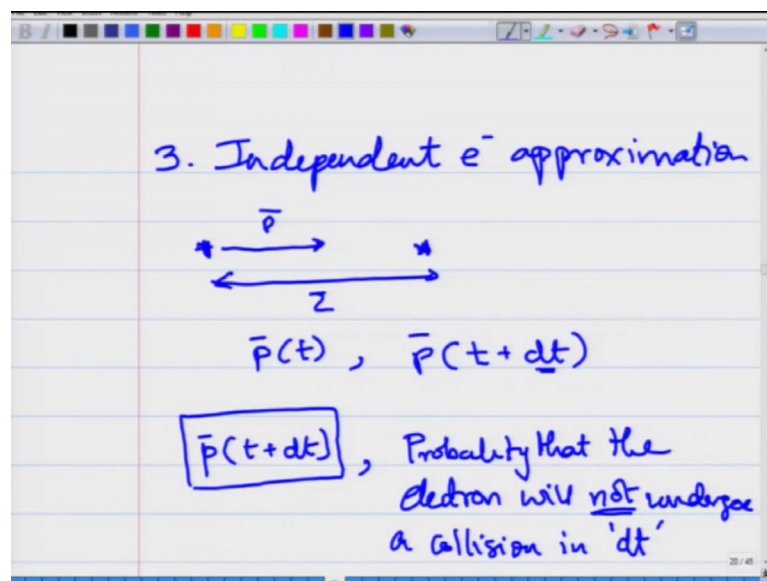 3. Independent e⁻ approximation
p̄
τ
p̄(t) , p̄(t + dt)
p̄(t+dt) , Probality that the
electron will not undergoe
a collision in 'dt'
20 / 45